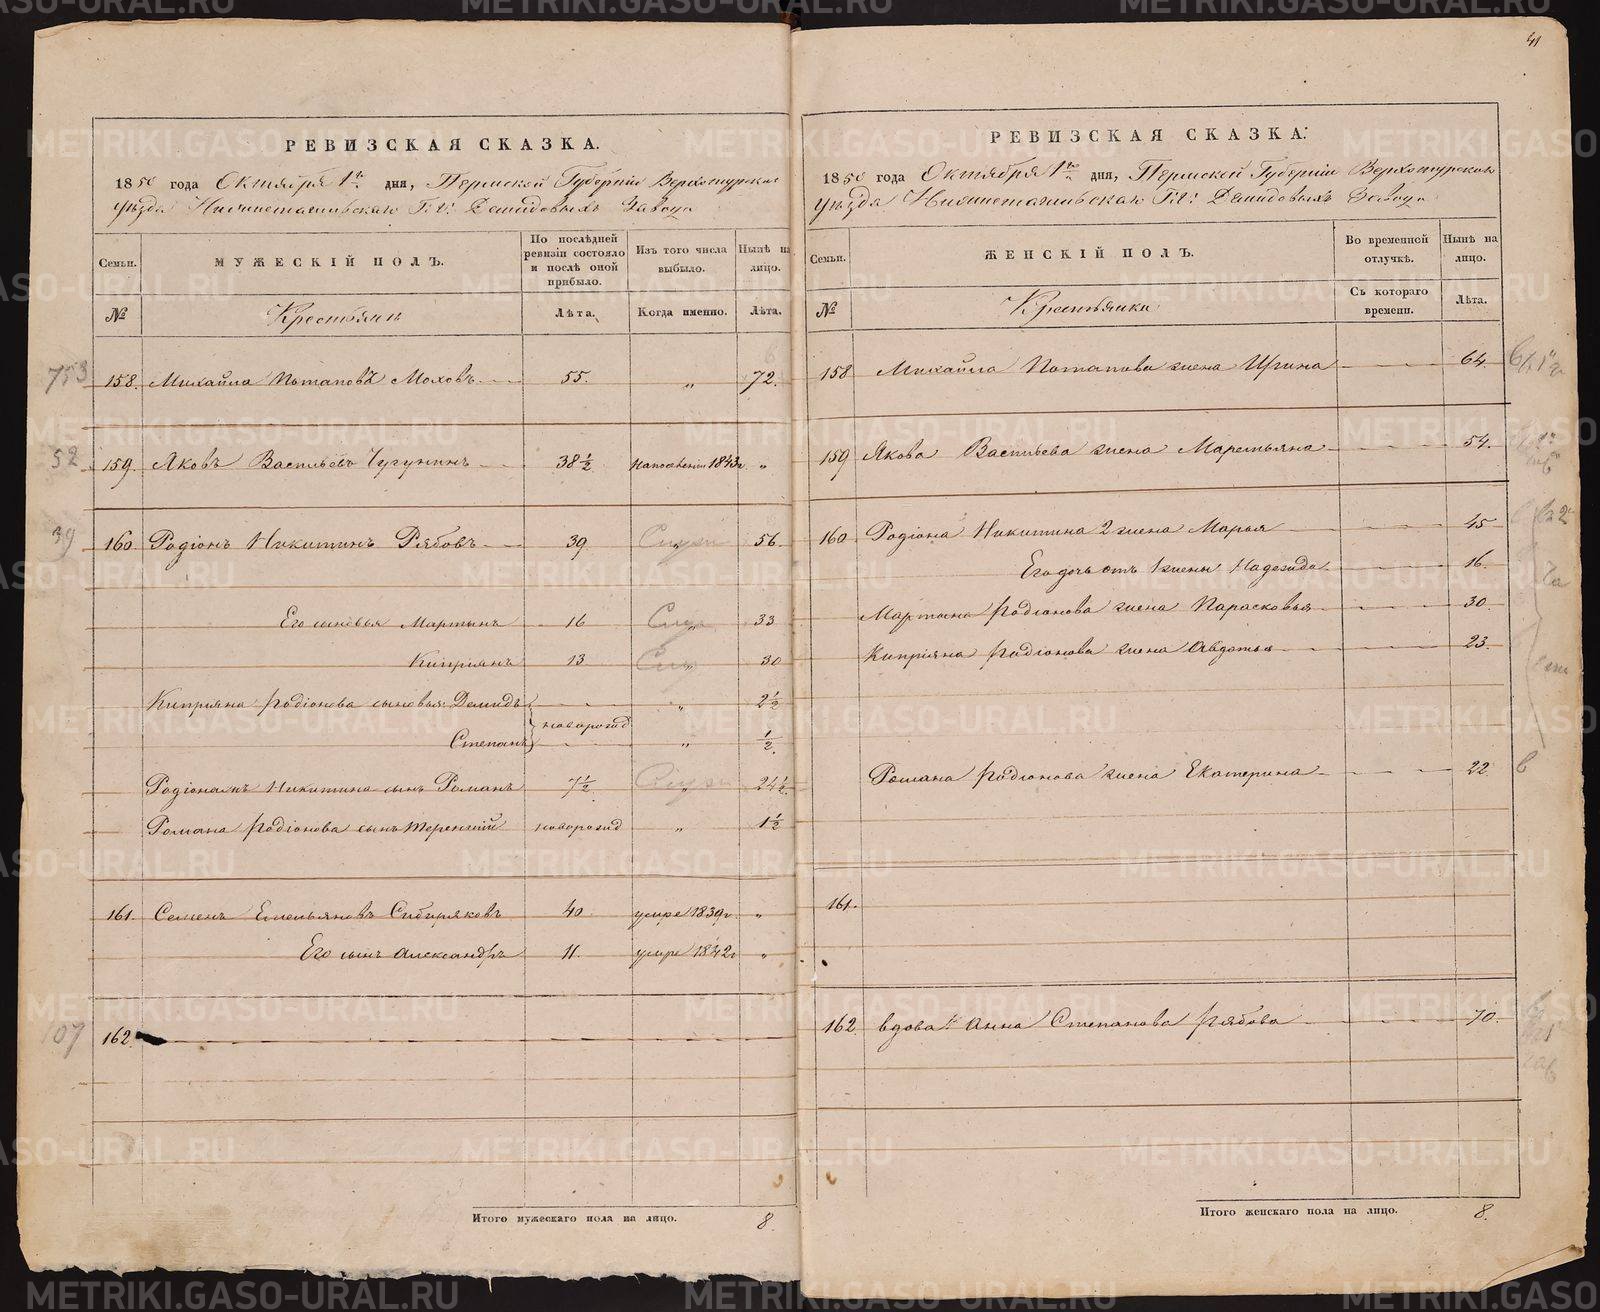 41
РЕВИЗСКАЯ СКАЗКА.
1850 года Октября 1го дня, Пермской Губернiи Верхотурскаго
уѣзда Нижнетагильскаго Гг: Демидовыхъ Завода
Семьи.
МУЖЕСКIЙ ПОЛЪ.
По послѣдней ревизiи состояло и послѣ оной прибыло.
Изъ того числа выбыло.
Нынѣ на лицо.
№
Крестьянъ
Лѣта.
Когда именно.
Лѣта.
753 158. Михайла Потаповъ Моховъ 55. „ 72.
52 159. Яковъ Васильевъ Чугунинъ 38½ 1843г. „
39 160 Родiонъ Никитинъ Рябовъ 39 „ 56
Его сыновья Мартынъ 16 „ 33
Кипрiянъ 13 „ 30
Кипрiяна Родiонова сыновья Демидъ „ 2½
новорожд
Степанъ „ ½
Никитина сынъ Романъ 7½ „ 24½
Романа Родiонова сынъ Терентiй новорожд „ 1½
161. Семенъ Емельяновъ Сибиряковъ 40 умре 1839г. „
Его сынъ Александръ 11. умре 1842г „
107 162.
Итого мужескаго пола на лицо. 8.
РЕВИЗСКАЯ СКАЗКА.
1850 года Октября 1го дня, Пермской Губернiи Верхотурскаго
уѣзда Нижнетагильскаго Гг: Демидовыхъ Завода
Семьи.
ЖЕНСКIЙ ПОЛЪ.
Во временной отлучкѣ.
Нынѣ на лицо.
№
Крестьянки
Съ котораго времени.
Лѣта.
158 Михайла Потапова жена Ирина 64.
159 Якова Васильева жена Маремьяна 54.
160 Родiона Никитина 2 жена Марья 45
Его дочь отъ 1 жены Надежда 16.
Мартына Родiонова жена Парасковья 30.
Кипрiяна Родiонова жена Авдотья 23.
Романа Родiонова жена Екатерина 22.
161.
162 вдова Анна Степанова Рябова 70.
Итого женскаго пола на лицо. 8.
METRIKI.GASO-URAL.RU